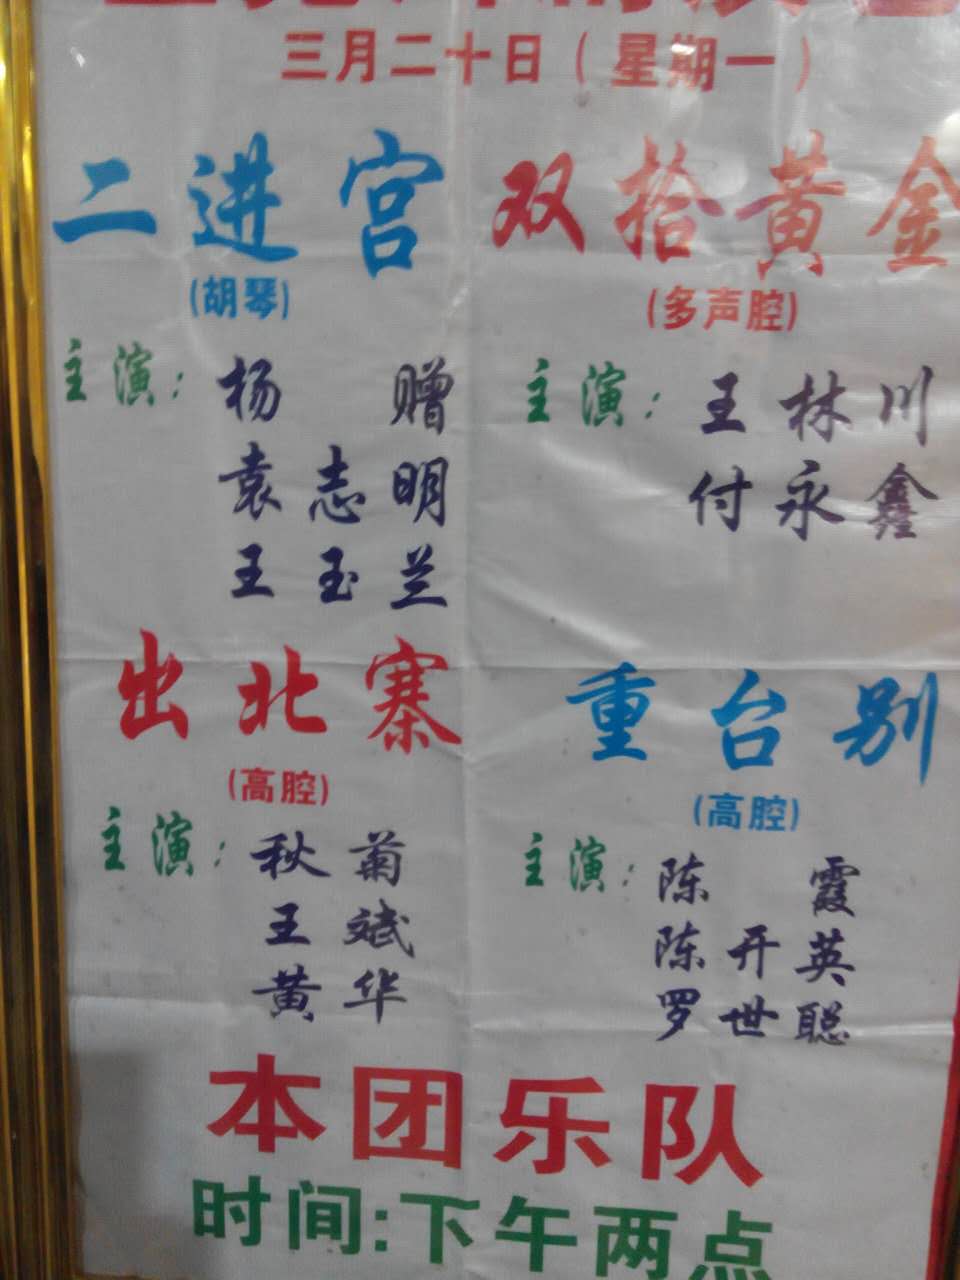 三月二十日（星期一）
二进宫
(胡琴)
主演：杨 赠
袁志明
王玉兰
双拾黄金
(多声腔)
主演：王林川
付永鑫
出北寨
(高腔)
主演：秋菊
王斌
黄华
重台别
(高腔)
主演：陈 霞
陈开英
罗世聪
本团乐队
时间:下午两点